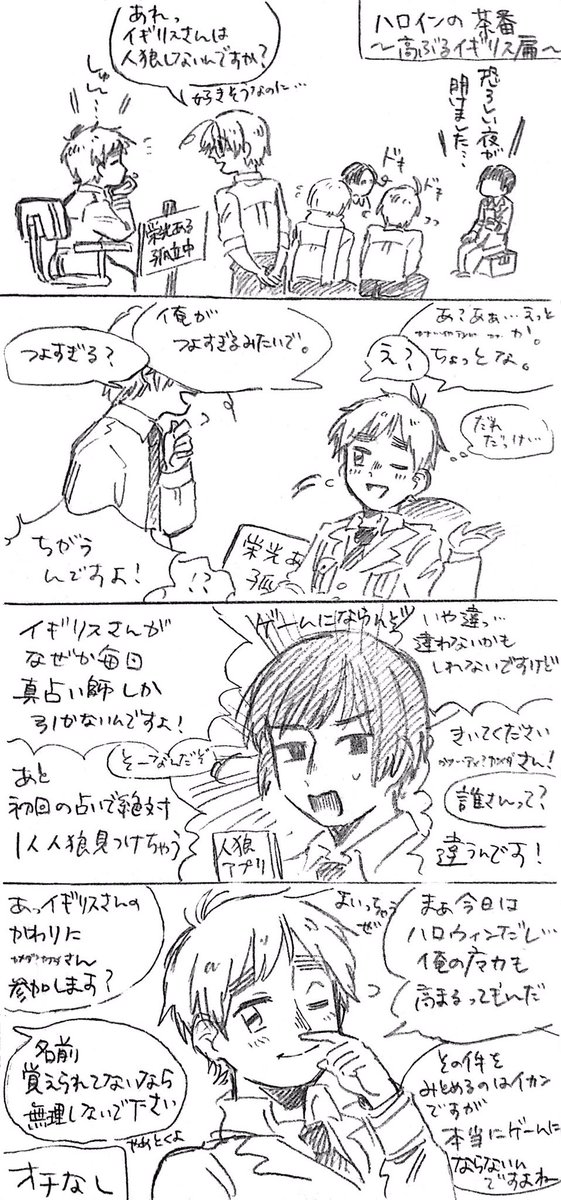 ハロインの茶番
〜高ぶるイギリス扁〜
恐ろしい夜が
明けました…
あれっ
イギリスさんは
人狼しないんですか?
好きそうなのに…
しゅん…
ドキ
ドキ
栄光ある
孤立中
あ?あぁ…えっと
か。
ちょっとな。
え?
だれ
だっけ…
俺が
つよすぎるみたいで。
つよすぎる?
栄光あ
孤
ちがう
んですよ!
!?
ゲームにならんぞ
いや違っ…
違わないかも
しれないですけど
きいてください
さん!
誰さんって?
違うんです!
イギリスさんが
なぜか毎日
真占い師しか
引かないんですよ!
そーなんだぞ
あと
初回の占いで絶対
1人人狼見つけちゃう
人狼
アプリ
まぁ今日は
ハロウィンだし…
俺の魔力も
高まるってもんだ
よいっちゃうぜ
あっイギリスさんの
かわりに
さん
参加します?
名前
覚えられてないなら
無理しないで下さい
やめとくよ
その件を
みとめるのはイカン
ですが
本当にゲームに
ならないん
ですよねー
オチなし